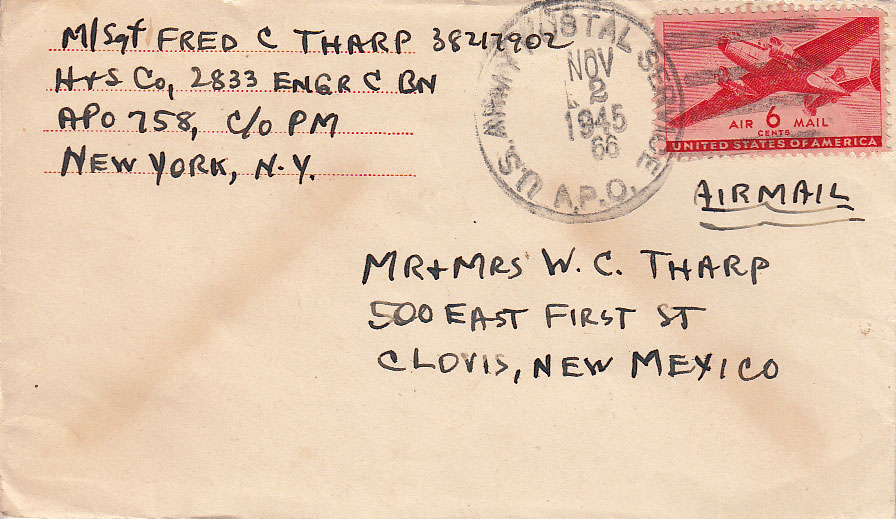 M/Sgt FRED C THARP 38212902
H+S Co, 2833 ENGR C BN
APO 758, C/O PM
NEW YORK, N.Y.
U.S. ARMY POSTAL SERVICE
NOV
2
1945
66
A.P.O.
AIR 6 MAIL
CENTS
UNITED STATES OF AMERICA
AIRMAIL
MR+MRS W. C. THARP
500 EAST FIRST ST
CLOVIS, NEW MEXICO